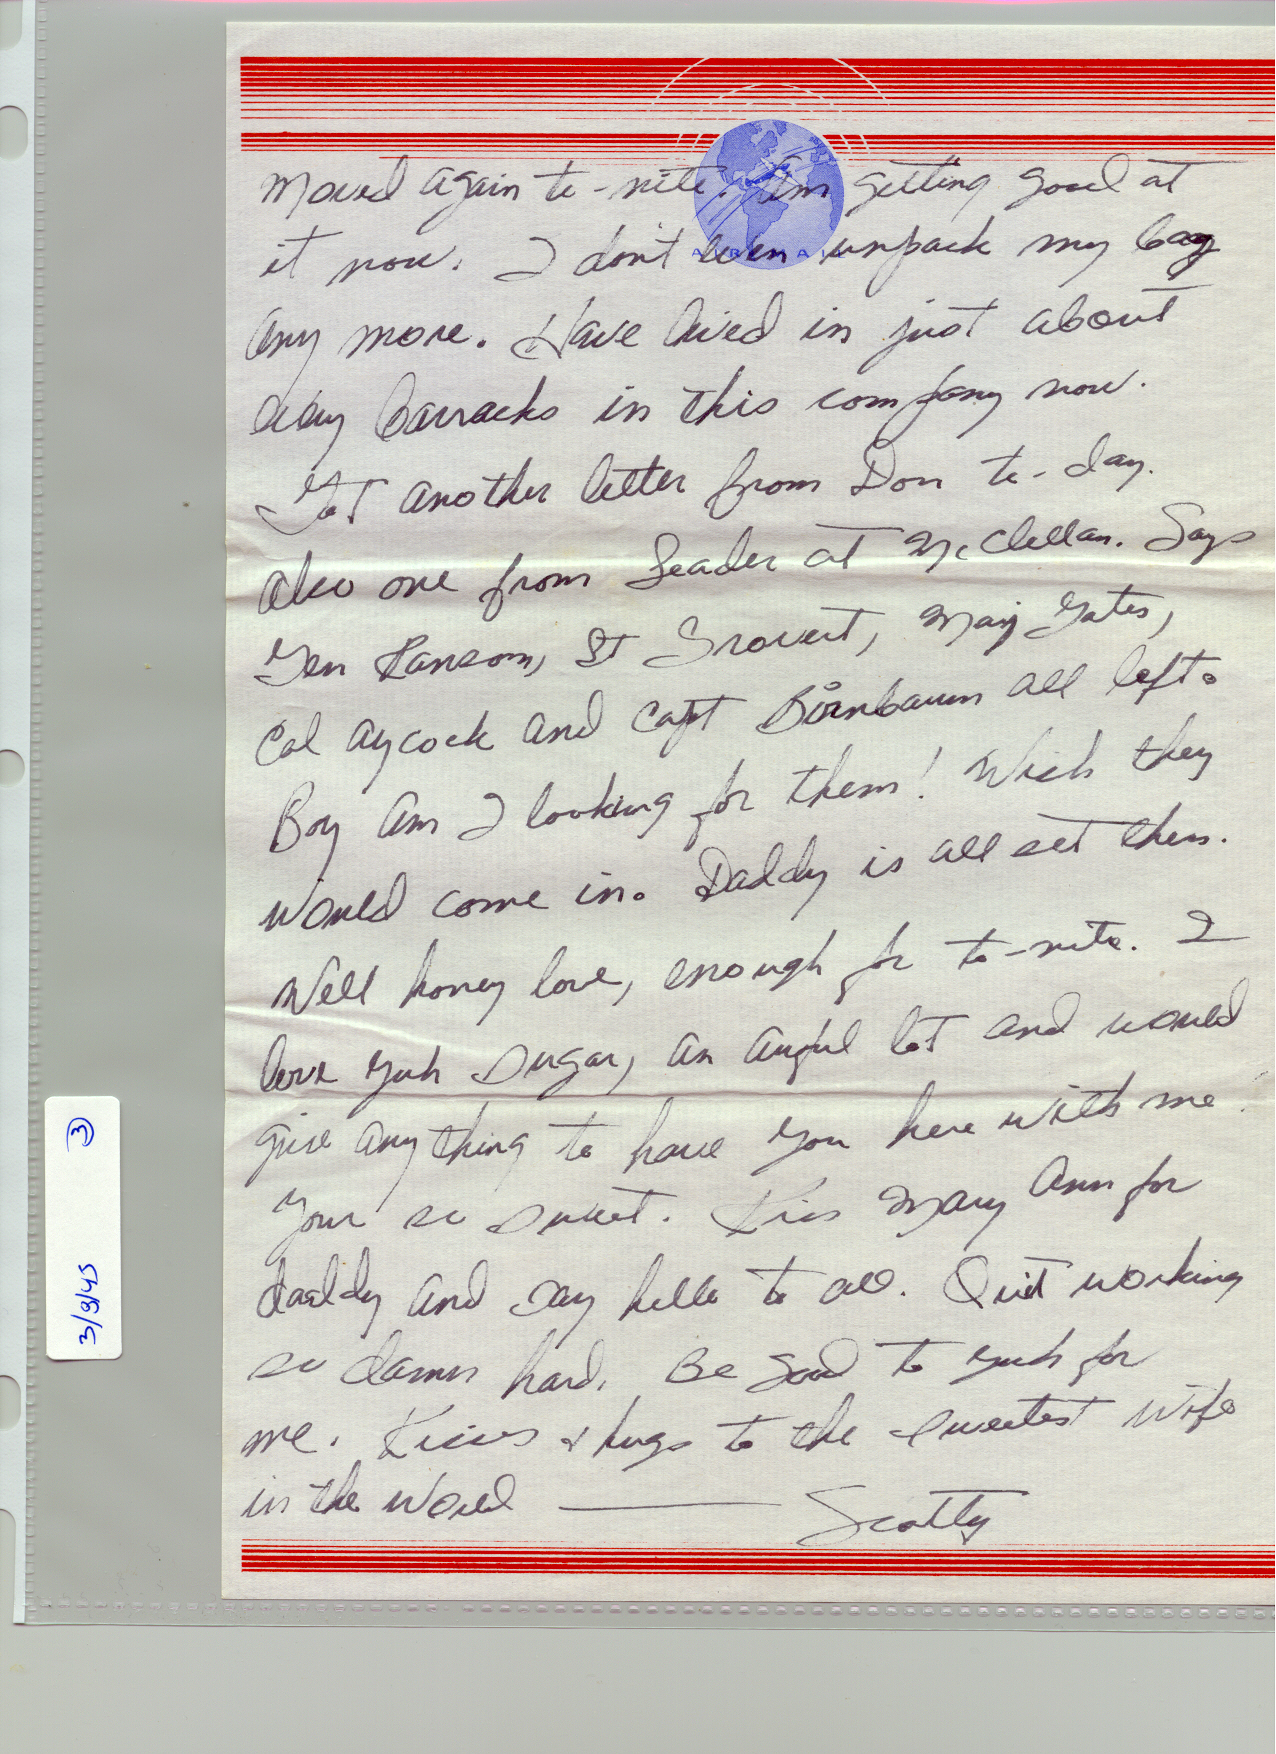 Moved again to-nite. Am getting good at
it now. I don't even unpack my bag
any more. Have lived in just about
every barracks in this company now.
Got another letter from Don to-day.
also one from Leader at McClellan. Says
Gen Ransom, Lt Grovert, Maj Yates,
Col Aycock and Capt Birnbaum all left.
Boy am I looking for them! Wish they
would come in. Daddy is all set then.
Well honey love, enough for to-nite. I
love yuh sugar, an awful lot and would
give anything to have you here with me.
Your so sweet. Kiss Mary Ann for
daddy and say hello to all. Quit working
so damn hard. Be good to yuh for
me. Kisses & hugs to the sweetest wife
in the world — Scotty
3/3/45 ③